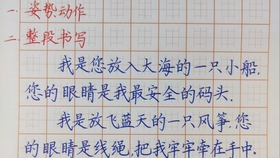 一.姿势动作
二.整段书写
我是您放入大海的一只小船.
您的眼睛是我最安全的码头.
我是您放飞蓝天的一只风筝.您
的眼睛是线绳,把我牢牢牵在手中.